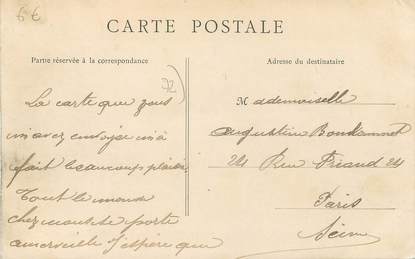 6 €
CARTE POSTALE
Partie réservée à la correspondance
Adresse du destinataire
La carte que vous
m'avez envoyée m'a
fait beaucoup plaisir
Tout le monde
chez nous se porte
a merveille J'espère que
Mademoiselle
Augustine
24 Rue 24
Paris
Seine